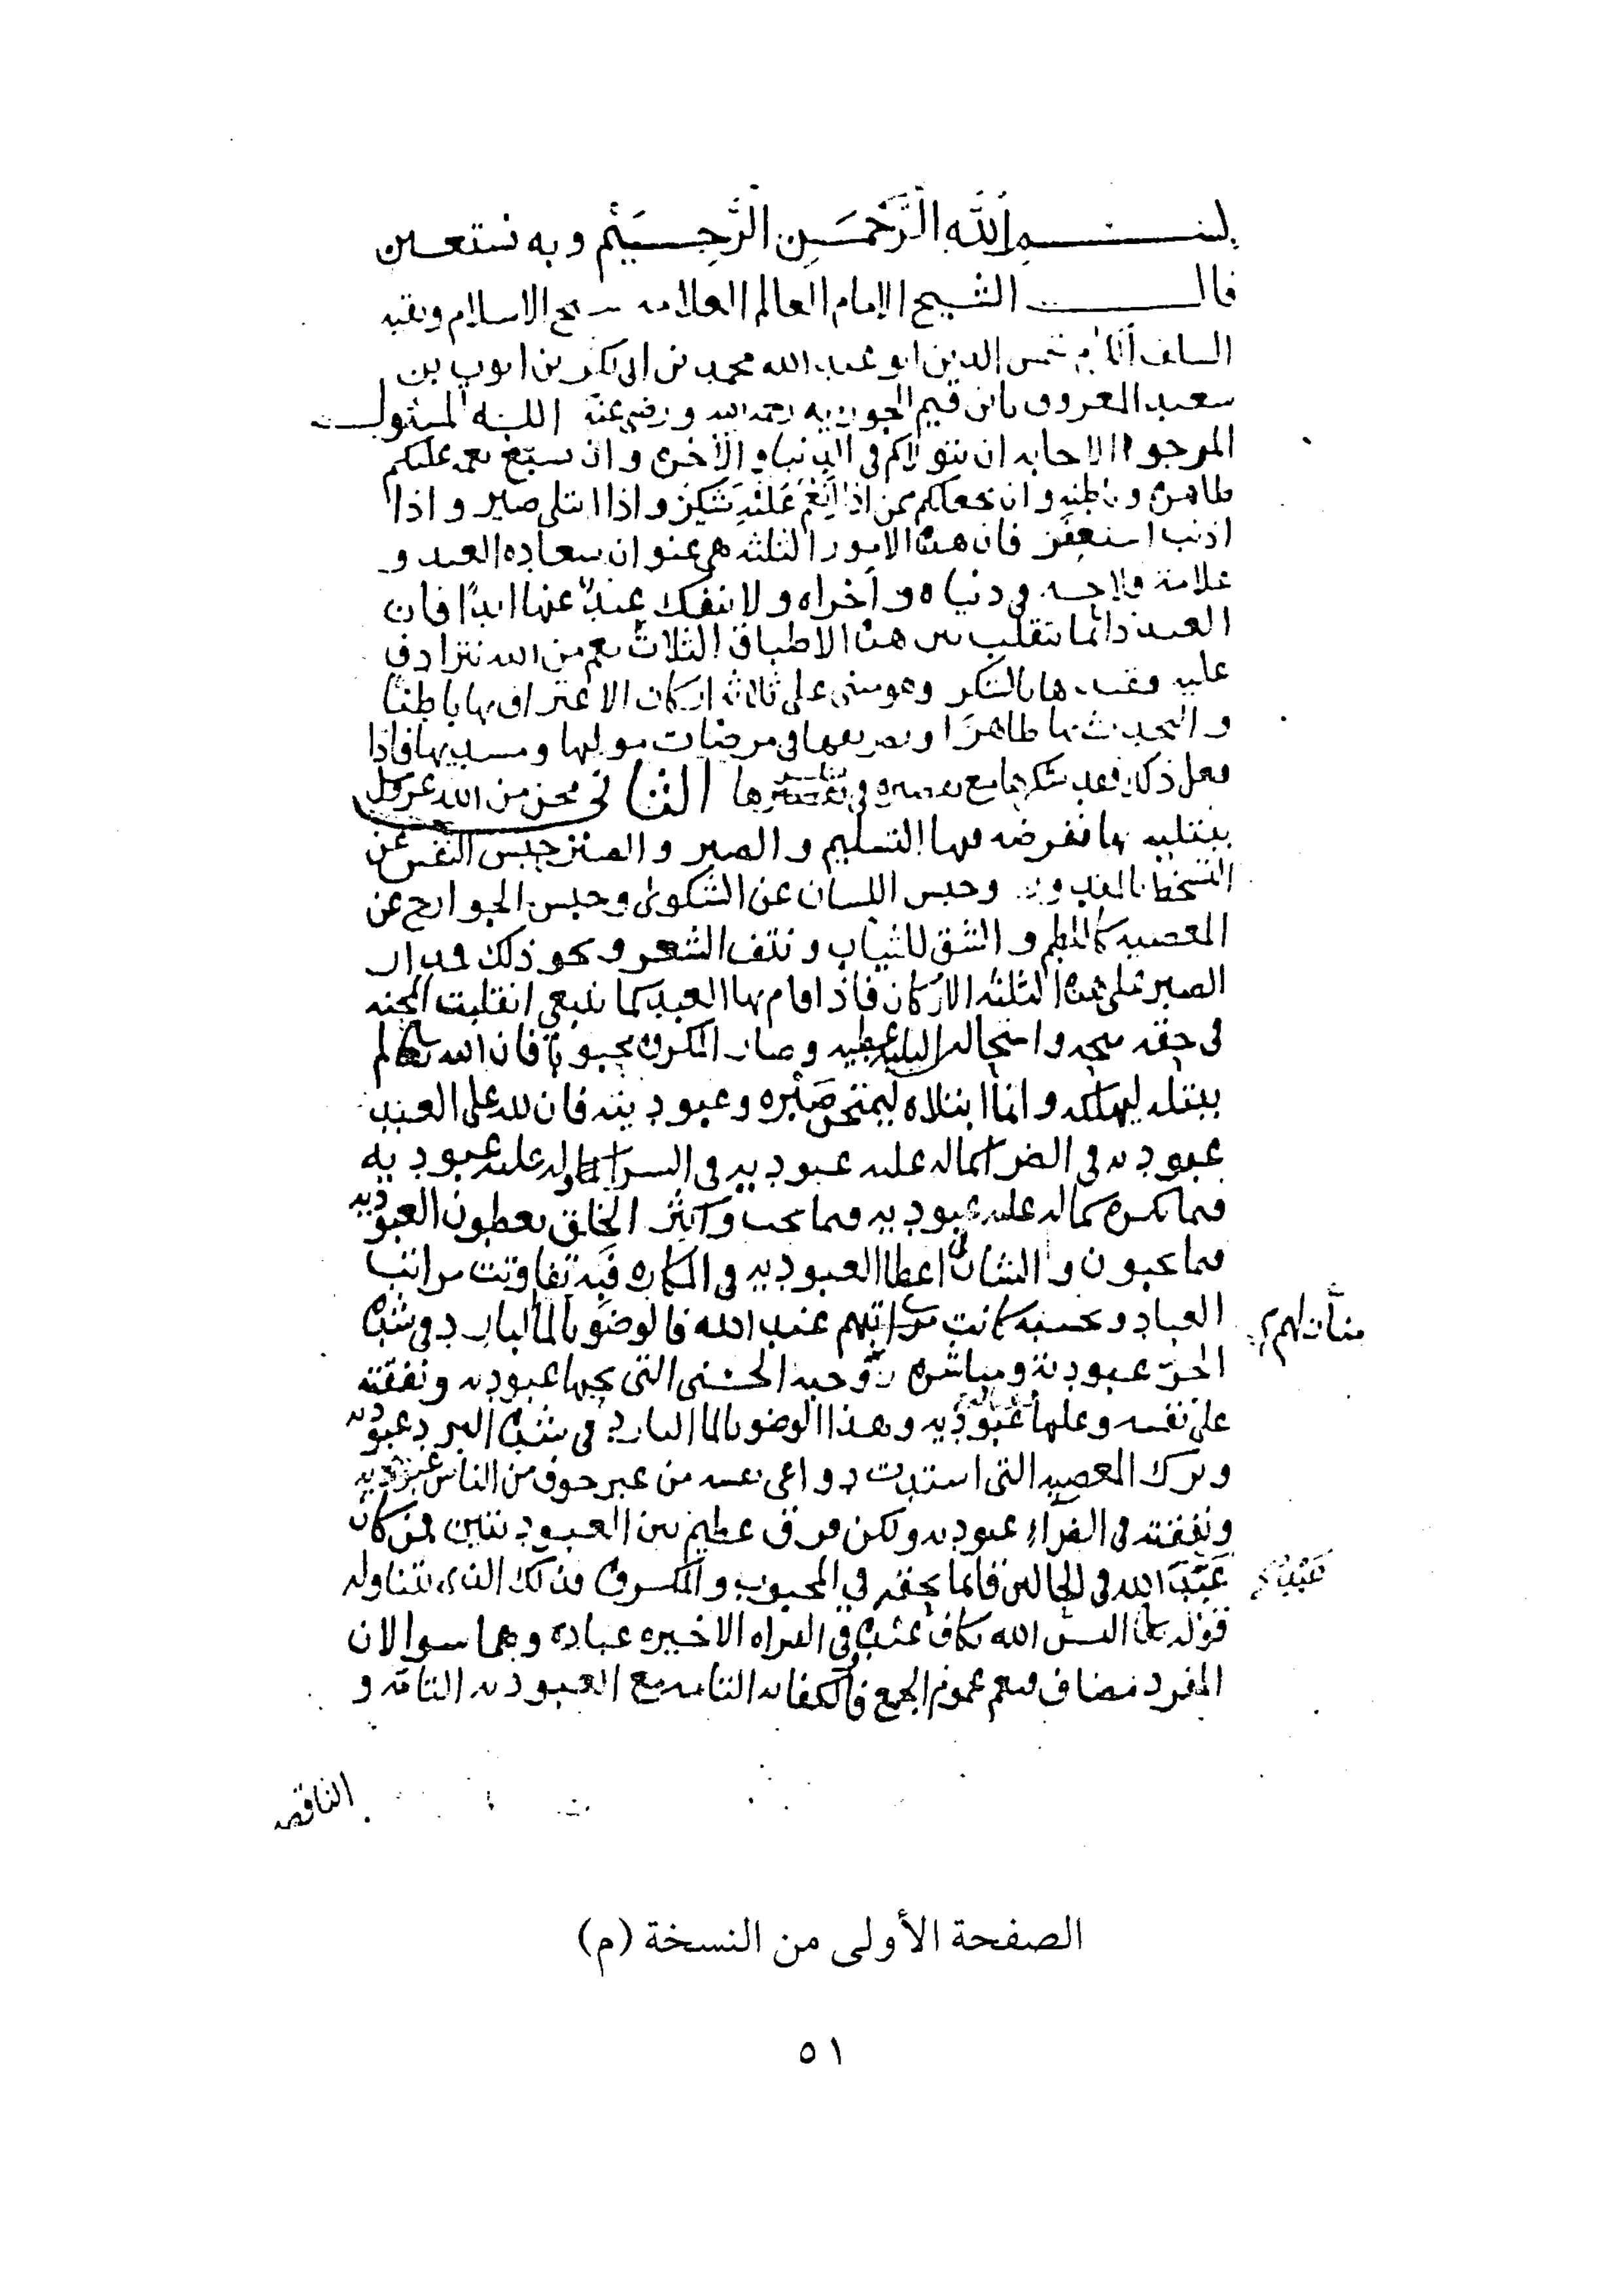 بسم الله الرحمن الرحيم وبه نستعين
قال الشيخ الإمام العالم العلامة شيخ الاسلام وبقية
السلف الكرام شمس الدين ابو عبد الله محمد بن ابي بكر بن ايوب بن
سعيد المعروف بابن قيم الجوزيه رحمه الله ورضي عنه الله المسئول
المرجو الاجابه ان يتولاكم في الدنيا والاخرى وان يسبغ نعمه عليكم
ظاهرة وباطنه وان يجعلكم ممن اذا انعم عليه شكر واذا ابتلي صبر واذا
اذنب استغفر فان هذه الامور الثلثه هي عنوان سعاده العبد و
علامة فلاحه في دنياه واخراه ولا ينفك عبد عنها ابدا فان
العبد دائما يتقلب بين هذه الاطباق الثلاث نعم من الله تترادف
عليه وقيدها بالشكر وهو مبني على ثلاثه اركان الاعتراف بها باطنا
والتحدث بها ظاهرا وتصريفها في مرضات موليها ومسديها فاذا
فعل ذلك فقد شكرها مع تقصيره في شكرها الثاني محن من الله عز وجل
يبتليه بها ففرضه فيها التسليم والصبر والصبر حبس النفس عن
التسخط بالمقدور وحبس اللسان عن الشكوى وحبس الجوارح عن
المعصيه كاللطم والشق للثياب ونتف الشعر ونحو ذلك فمدار
الصبر على هذه الثلثه الاركان فاذا قام بها العبد كما ينبغي انقلبت المحنه
في حقه منحه واستحاله البليه عطيه وصار المكروه محبوبا فان الله تعالى لم
يبتله ليهلكه وانما ابتلاه ليمتحن صبره وعبوديته فان لله على العبد
عبوديه في الضرا كما له عليه عبوديه في السرا وله عليه عبوديه
فيما يكره كما له عليه عبوديه فيما يحب واكثر الخلق يعطون العبوديه
فيما يحبون والشان في اعطا العبوديه في المكاره فيه تفاوتت مراتب
العباد وبحسبه كانت مراتبهم عند الله فالوضو بالما البارد في شدة
منازلهم
الحر عبودية ومباشرة زوجته الحسنى التي يحبها عبوديه ونفقته
على نفسه وعليها عبوديه وهذا الوضو بالما البارد في شدة البرد عبوديه
وترك المعصيه التي اشتدت دواعي نفسه من غير خوف من الناس عبوديه
ونفقته في الضراء عبوديه ولكن فرق عظيم بين العبوديتين فمن كان
عبد الله في الحالين قائما بحقه في المحبوب والمكروه فذلك الذي يتناوله
عبدا
قوله تعالى اليس الله بكاف عبده وفي القراه الاخيره عباده وهما سوا لان
المفرد مضاف فيعم عموم الجمع فالكفايه التامه مع العبوديه التامه و
الناقصه
الصفحة الأولى من النسخة (م)
٥١